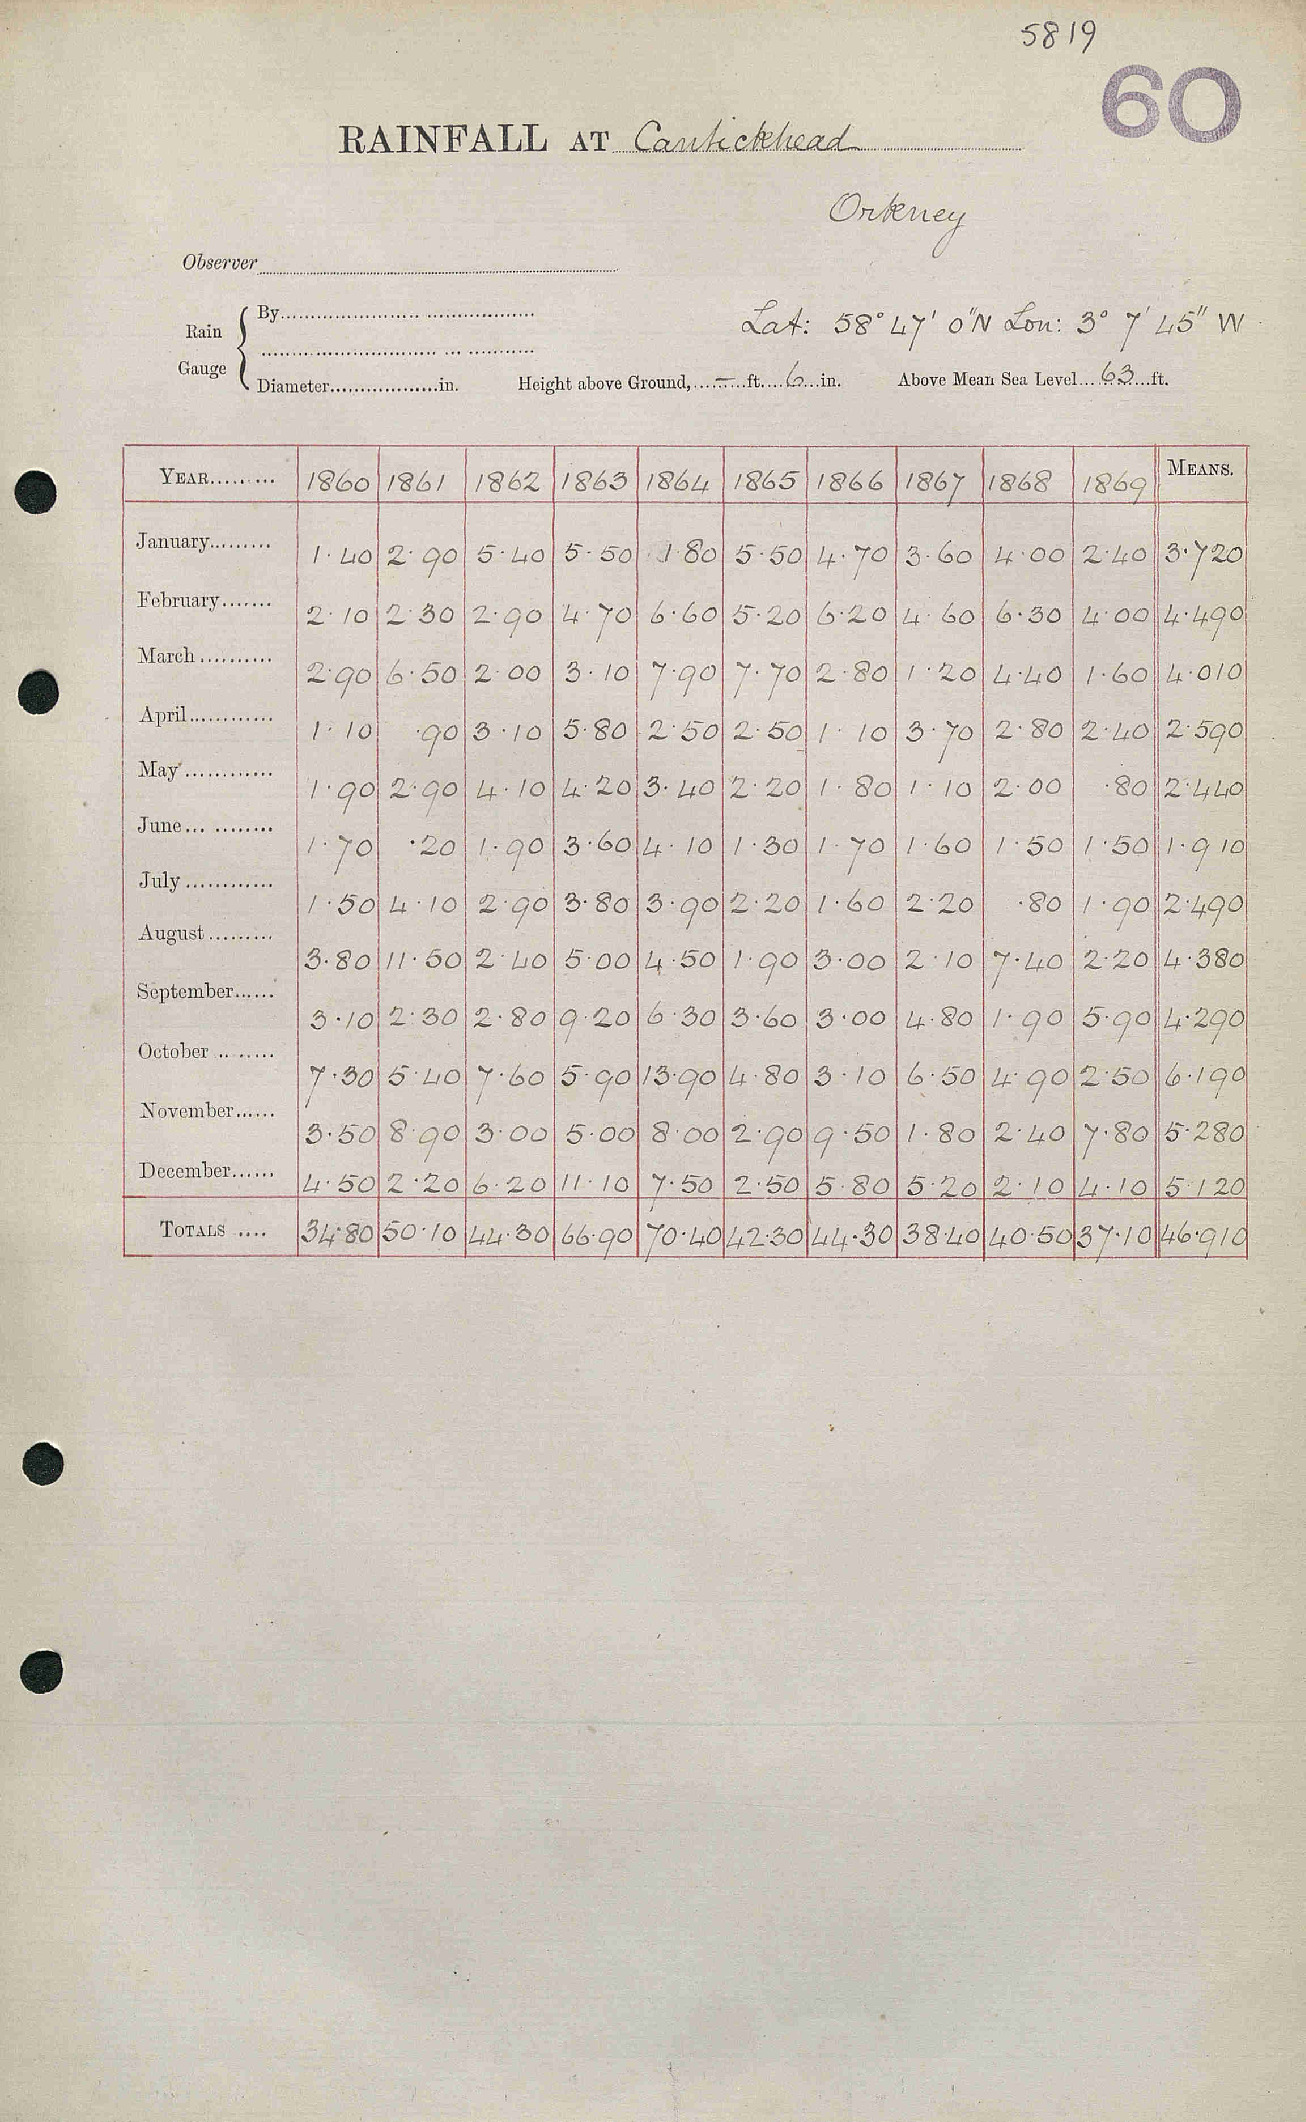 5819
60
RAINFALL AT Cantickhead
Orkney
Observer
Rain Gauge
By
Lat: 58° 47' 0"N Lon: 3° 7' 45" W
Diameter in. Height above Ground, - ft. 6 in. Above Mean Sea Level 63 ft.
YEAR 1860 1861 1862 1863 1864 1865 1866 1867 1868 1869 MEANS.
January 1·40 2·90 5·40 5·50 1·80 5·50 4·70 3·60 4·00 2·40 3·720
February 2·10 2·30 2·90 4·70 6·60 5·20 6·20 4·60 6·30 4·00 4·490
March 2·90 6·50 2·00 3·10 7·90 7·70 2·80 1·20 4·40 1·60 4·010
April 1·10 ·90 3·10 5·80 2·50 2·50 1·10 3·70 2·80 2·40 2·590
May 1·90 2·90 4·10 4·20 3·40 2·20 1·80 1·10 2·00 ·80 2·440
June 1·70 ·20 1·90 3·60 4·10 1·30 1·70 1·60 1·50 1·50 1·910
July 1·50 4·10 2·90 3·80 3·90 2·20 1·60 2·20 ·80 1·90 2·490
August 3·80 11·50 2·40 5·00 4·50 1·90 3·00 2·10 7·40 2·20 4·380
September 3·10 2·30 2·80 9·20 6·30 3·60 3·00 4·80 1·90 5·90 4·290
October 7·30 5·40 7·60 5·90 13·90 4·80 3·10 6·50 4·90 2·50 6·190
November 3·50 8·90 3·00 5·00 8·00 2·90 9·50 1·80 2·40 7·80 5·280
December 4·50 2·20 6·20 11·10 7·50 2·50 5·80 5·20 2·10 4·10 5·120
TOTALS 34·80 50·10 44·30 66·90 70·40 42·30 44·30 38·40 40·50 37·10 46·910